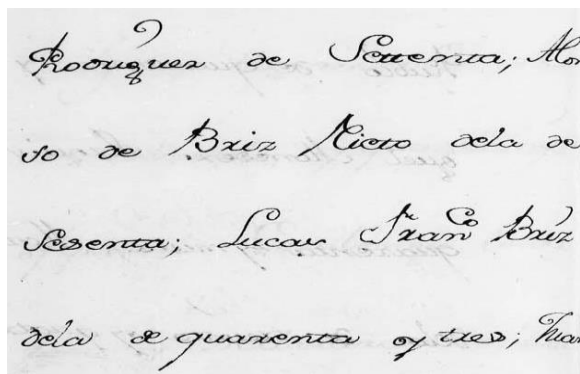 Rodriguez de Settenta; Alon
so de Briz Nieto dela de
Sesenta; Lucas Fran.co Briz
dela de quarenta y tres; Juan